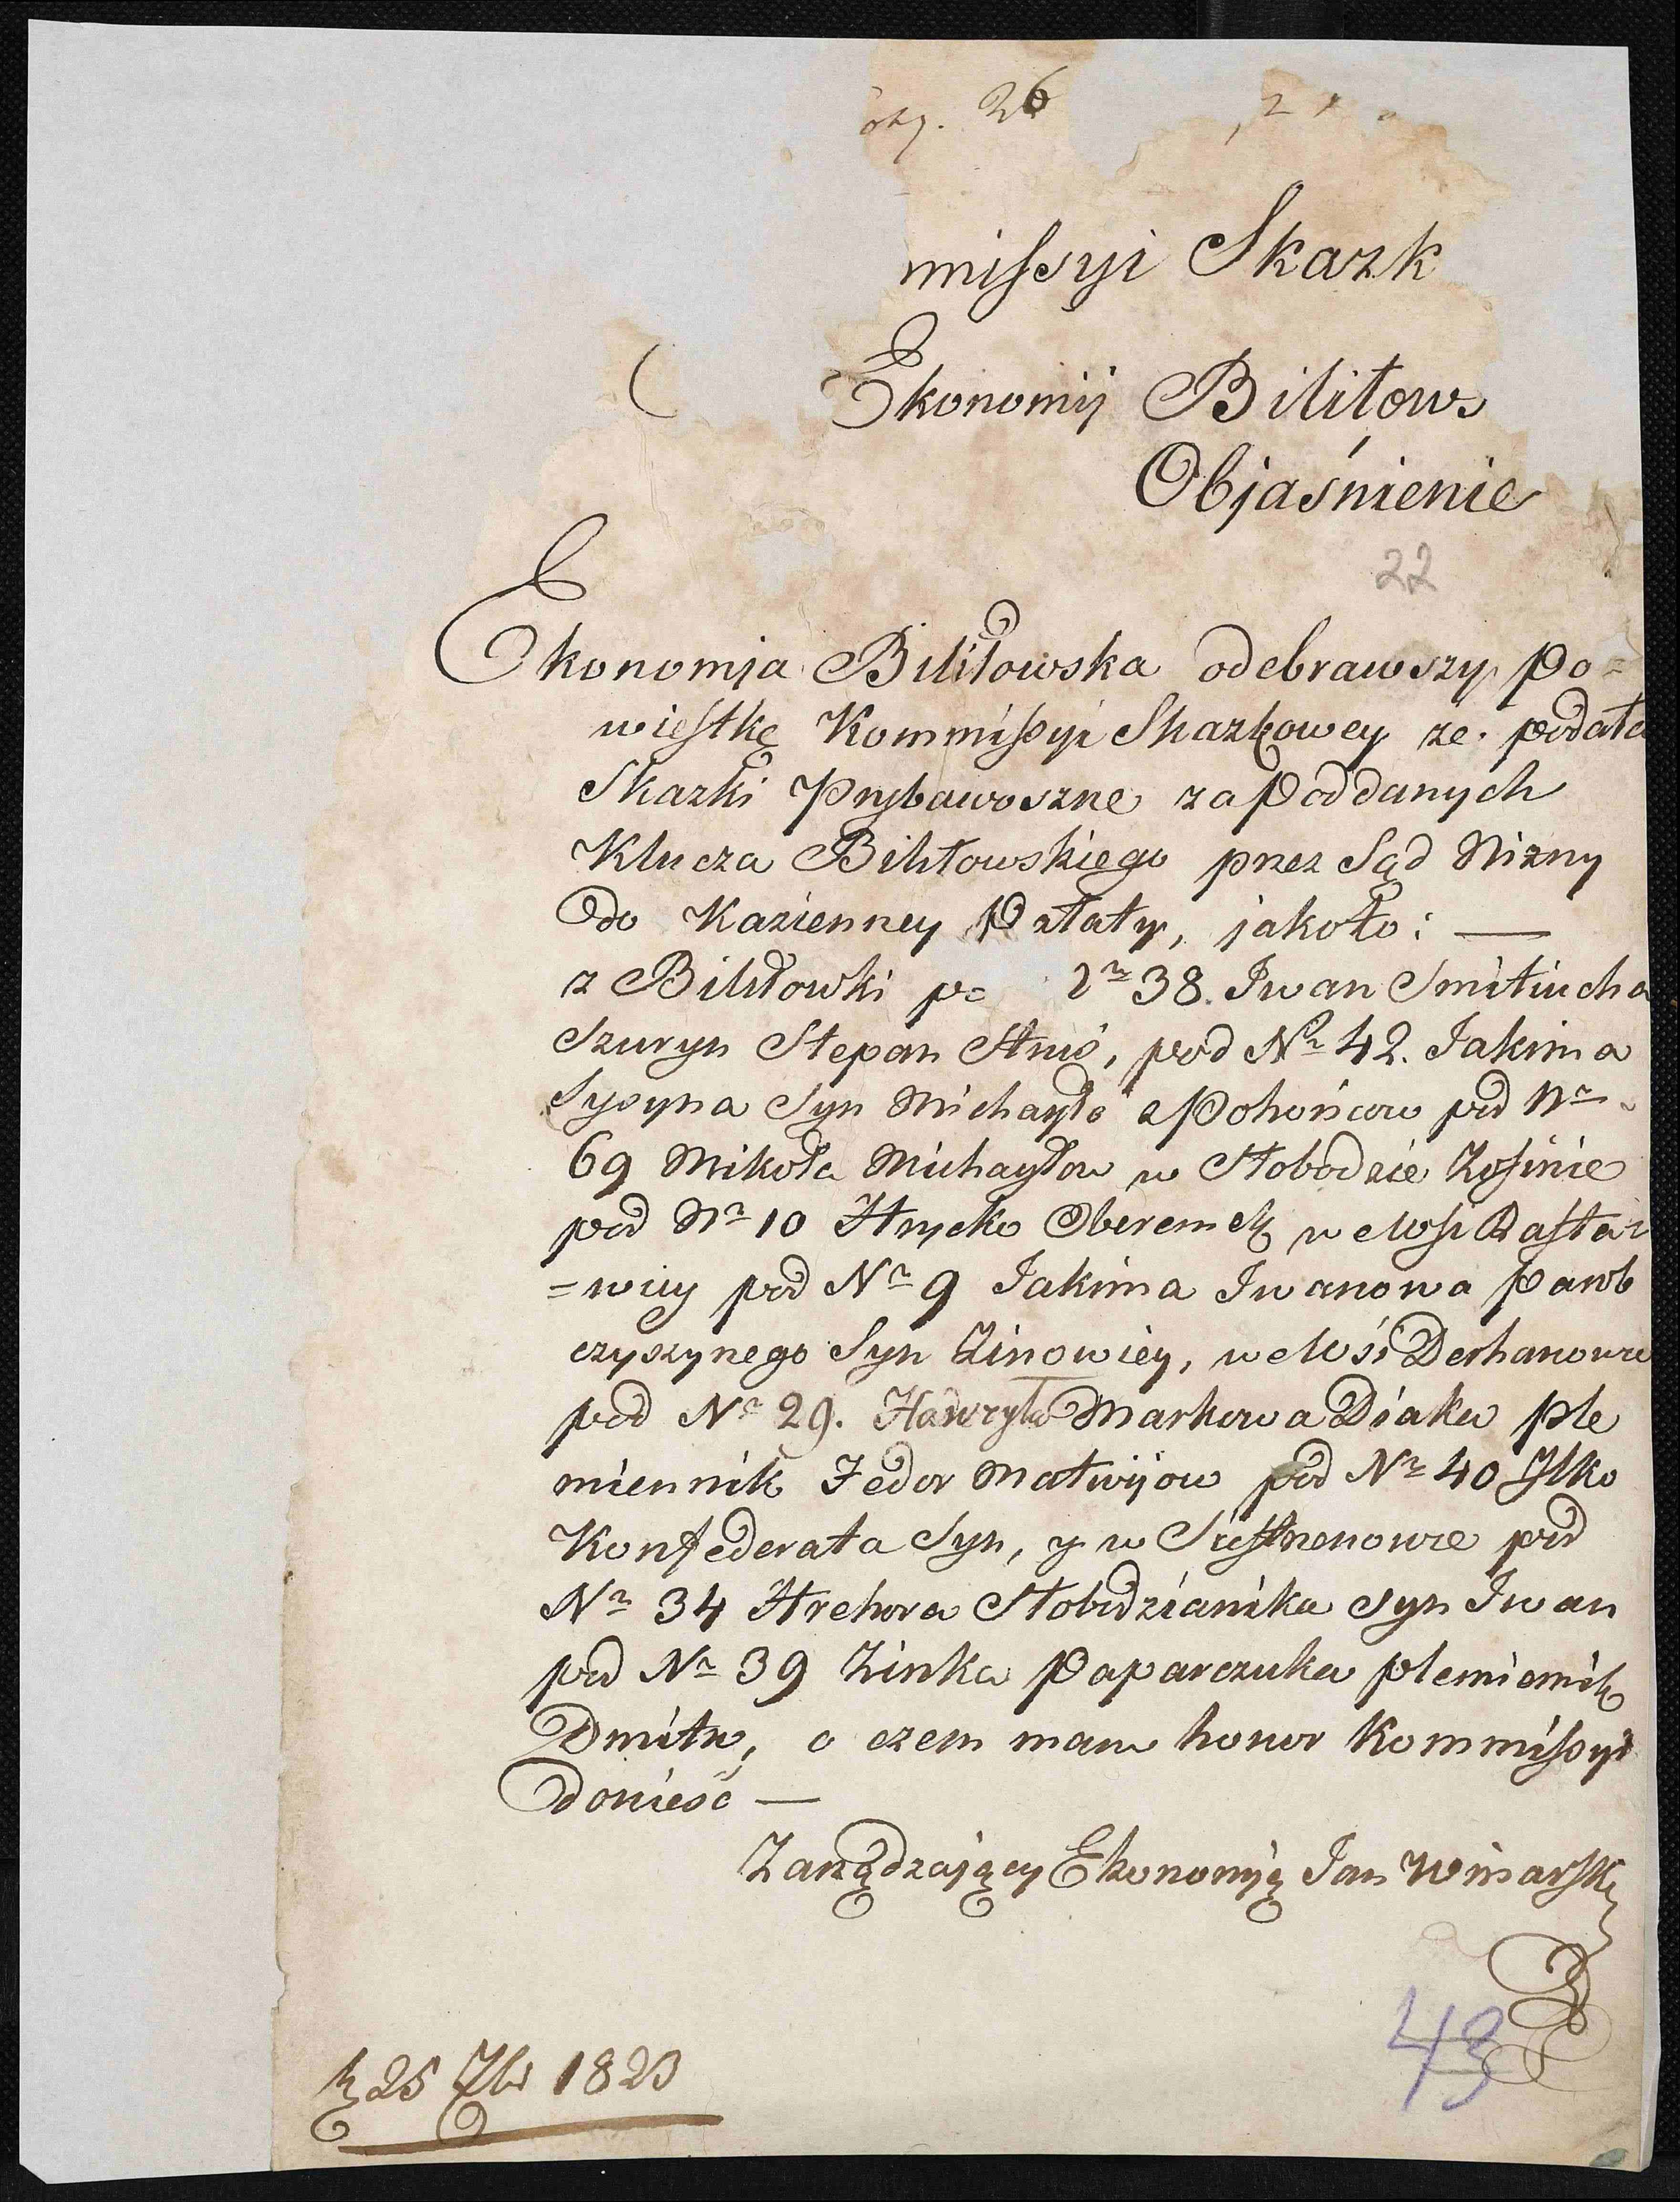 26
missyi Skazk
Ekonomij Bilitow
Objaśnienie
22
Ekonomja Bilitowska odebrawszy po=
wiestkę Kommissyi Skazkowey ze podała
Skazki Prybawoszne za Poddanych
Klucza Bilitowskiego przez Sąd Nizny
do Kazienney Pałaty, jakoto: —
z Bilitowki 38. Iwan Smitiucha
Szuryn Stepan, pod Nr 42. Jakima
Sysyna Syn Michayło pod Nr
69 Mikoła Michayłow w Słobodzie Zofinie
pod Nr 10 Hryćko Oberemek we Wsi
=wicy pod Nr 9 Jakima Iwanowa Parob
czyszynego Syn Zinowiey, we Wsi Derhanowce
pod Nr 29. Hawryła Markowa Diaka ple
miennik Fedor Matwijow pod Nr 40 Ilko
Konfederata Syn, y w pod
Nr 34 Hrehora Słobodzianika syn Iwan
pod Nr 39 Zinka Paparczuka plemiennik
Dmitr, o czem mam honor Kommissyi
donieść —
Zarządzający Ekonomiją Jan Winarski
43
25 7br 1823